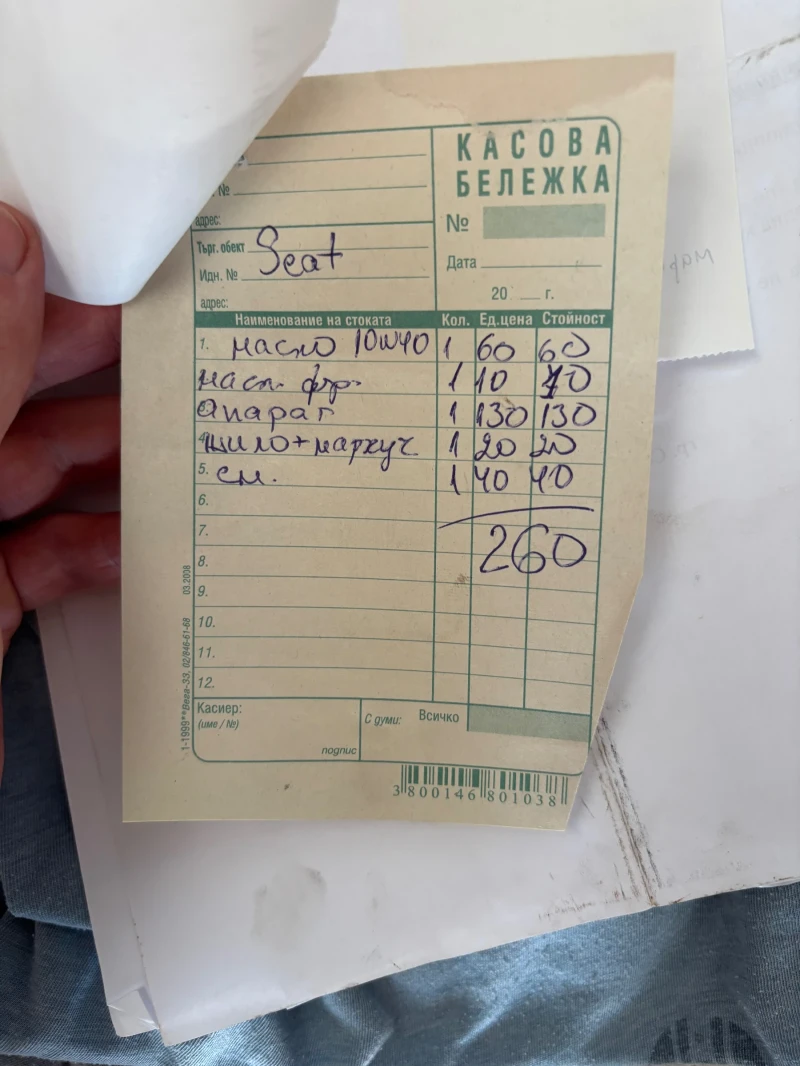 КАСОВА
БЕЛЕЖКА
№
адрес:
№
Дата
20 __ г.
Търг. обект Seat
Идн. №
адрес:
Наименование на стоката Кол. Ед.цена Стойност
1. масло 10W40 1 60 60
масл. фтр. 1 10 10
апарат 1 130 130
4. шило+маркуч 1 20 20
5. см. 1 40 40
6.
7. 260
8.
9.
10.
11.
12.
Касиер:
(име / №)
подпис
С думи: Всичко
1-1999**Вега-33, 02/846-61-68 03.2008
3 800146 801038